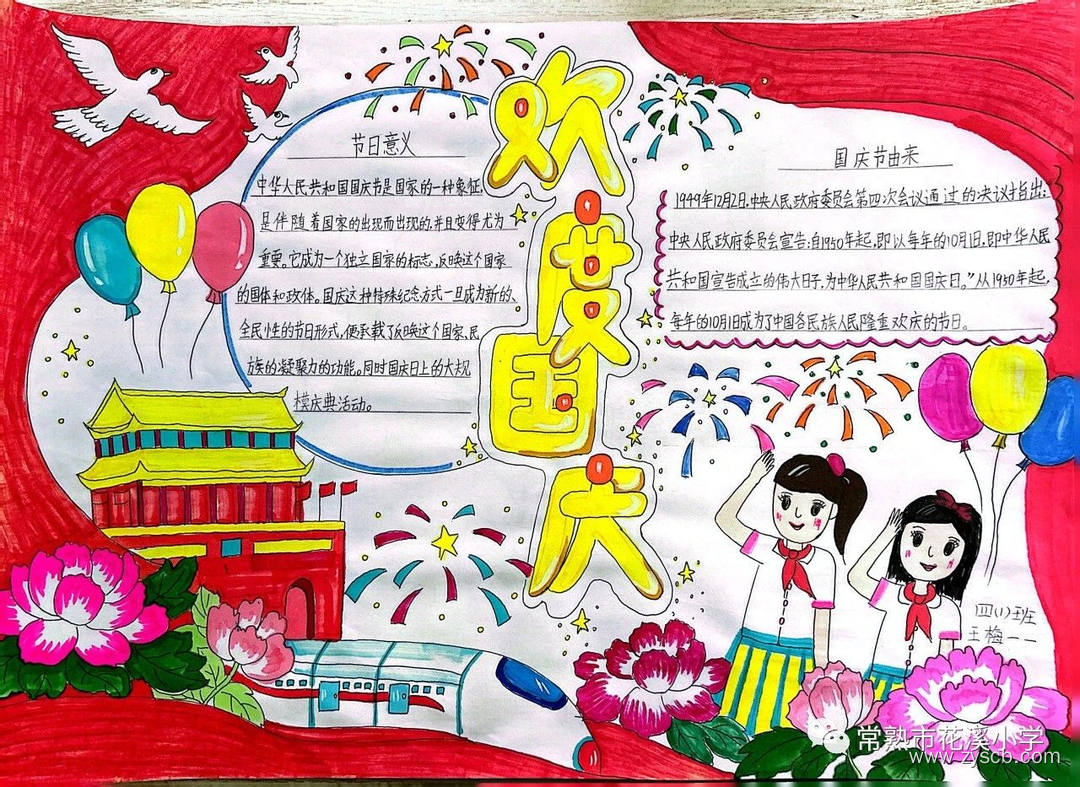 欢度国庆
节日意义
中华人民共和国国庆节是国家的一种象征,
是伴随着国家的出现而出现的,并且变得尤为
重要。它成为一个独立国家的标志,反映这个国家
的国体和政体。国庆这种特殊纪念方式一旦成为新的、
全民性的节日形式,便承载了反映这个国家、民
族的凝聚力的功能。同时国庆日上的大规
模庆典活动。
国庆节由来
1949年12月2日,中央人民政府委员会第四次会议通过的决议指出:
中央人民政府委员会宣告:自1950年起,即以每年的10月1日,即中华人民
共和国宣告成立的伟大日子,为中华人民共和国国庆日。”从1950年起,
每年的10月1日成为了中国各民族人民隆重欢庆的节日。
四(1)班
王梅一一
常熟市花溪小学
www.zyscb.com